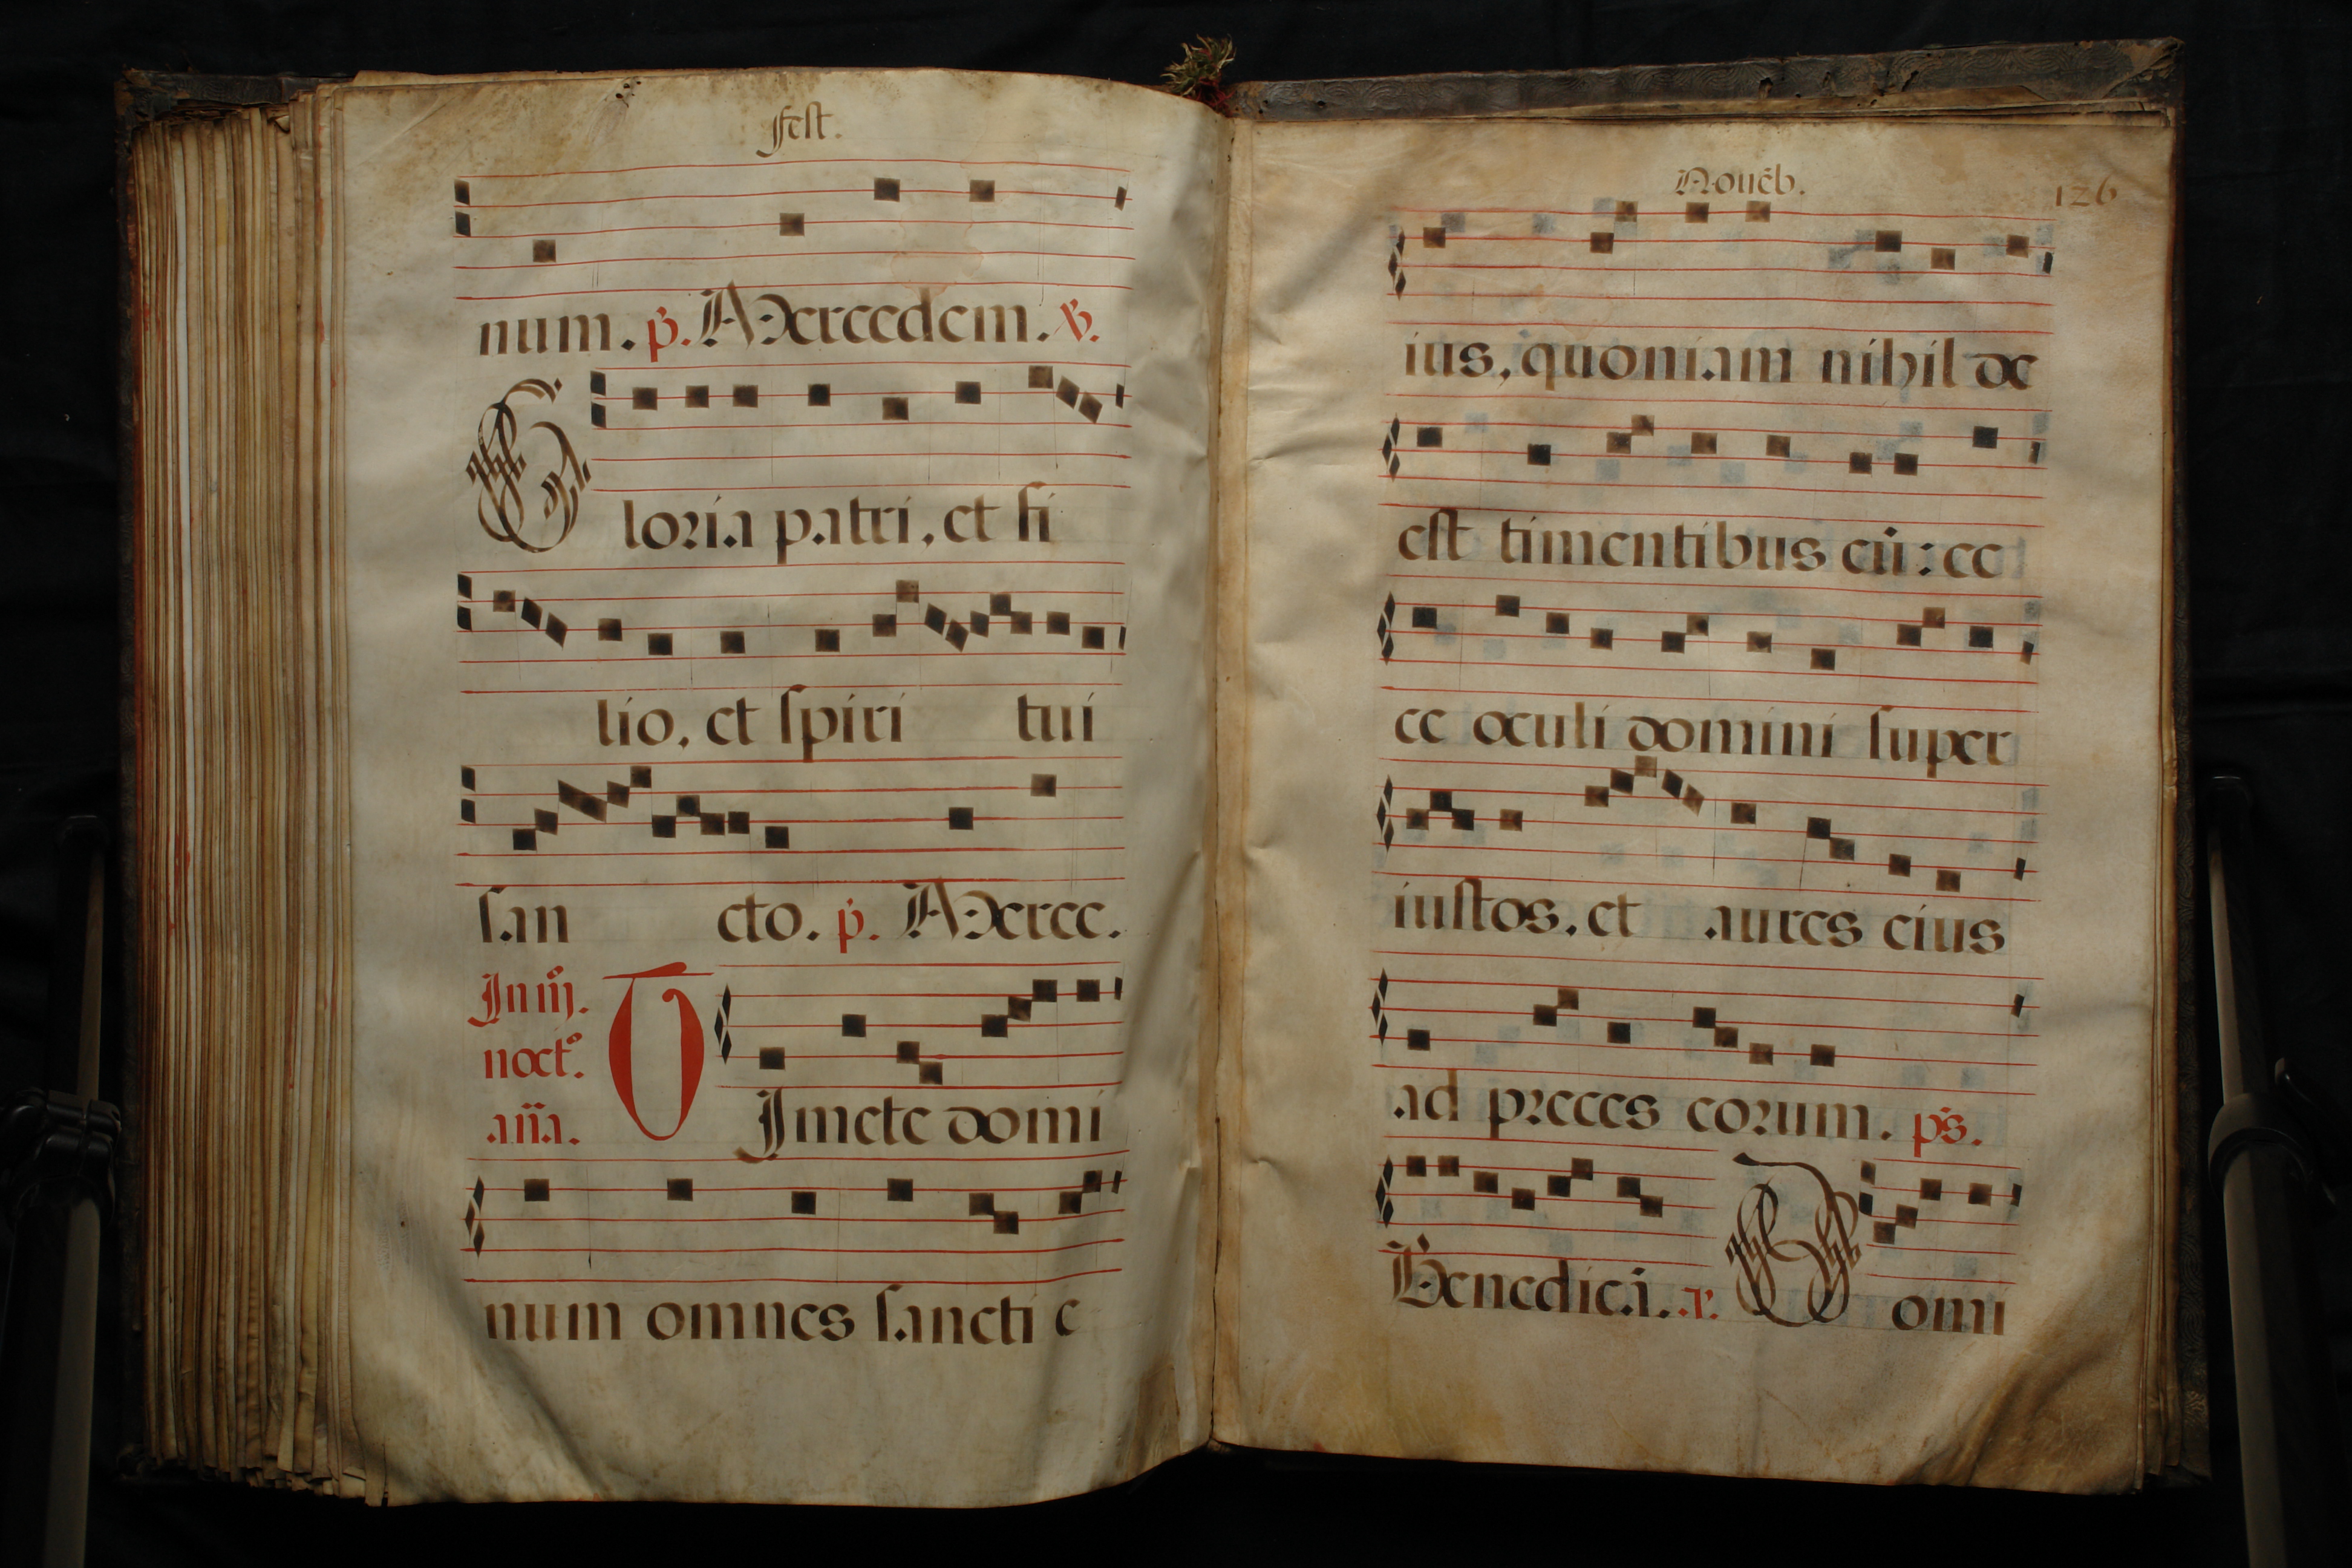 fest.
num. p̃. Mercedem. V̸.
Gloria patri, et fi
lio, et spiri tui
san cto. p̃. Merce.
In iij.
noct.
añа.
TImete domi
num omnes sancti e
Nouēb. 126
ius, quoniam nihil de
est timentibus eū: ec
ce oculi domini super
iustos, et aures eius
ad preces eorum. ps̃.
Benedicā. r.
Domi